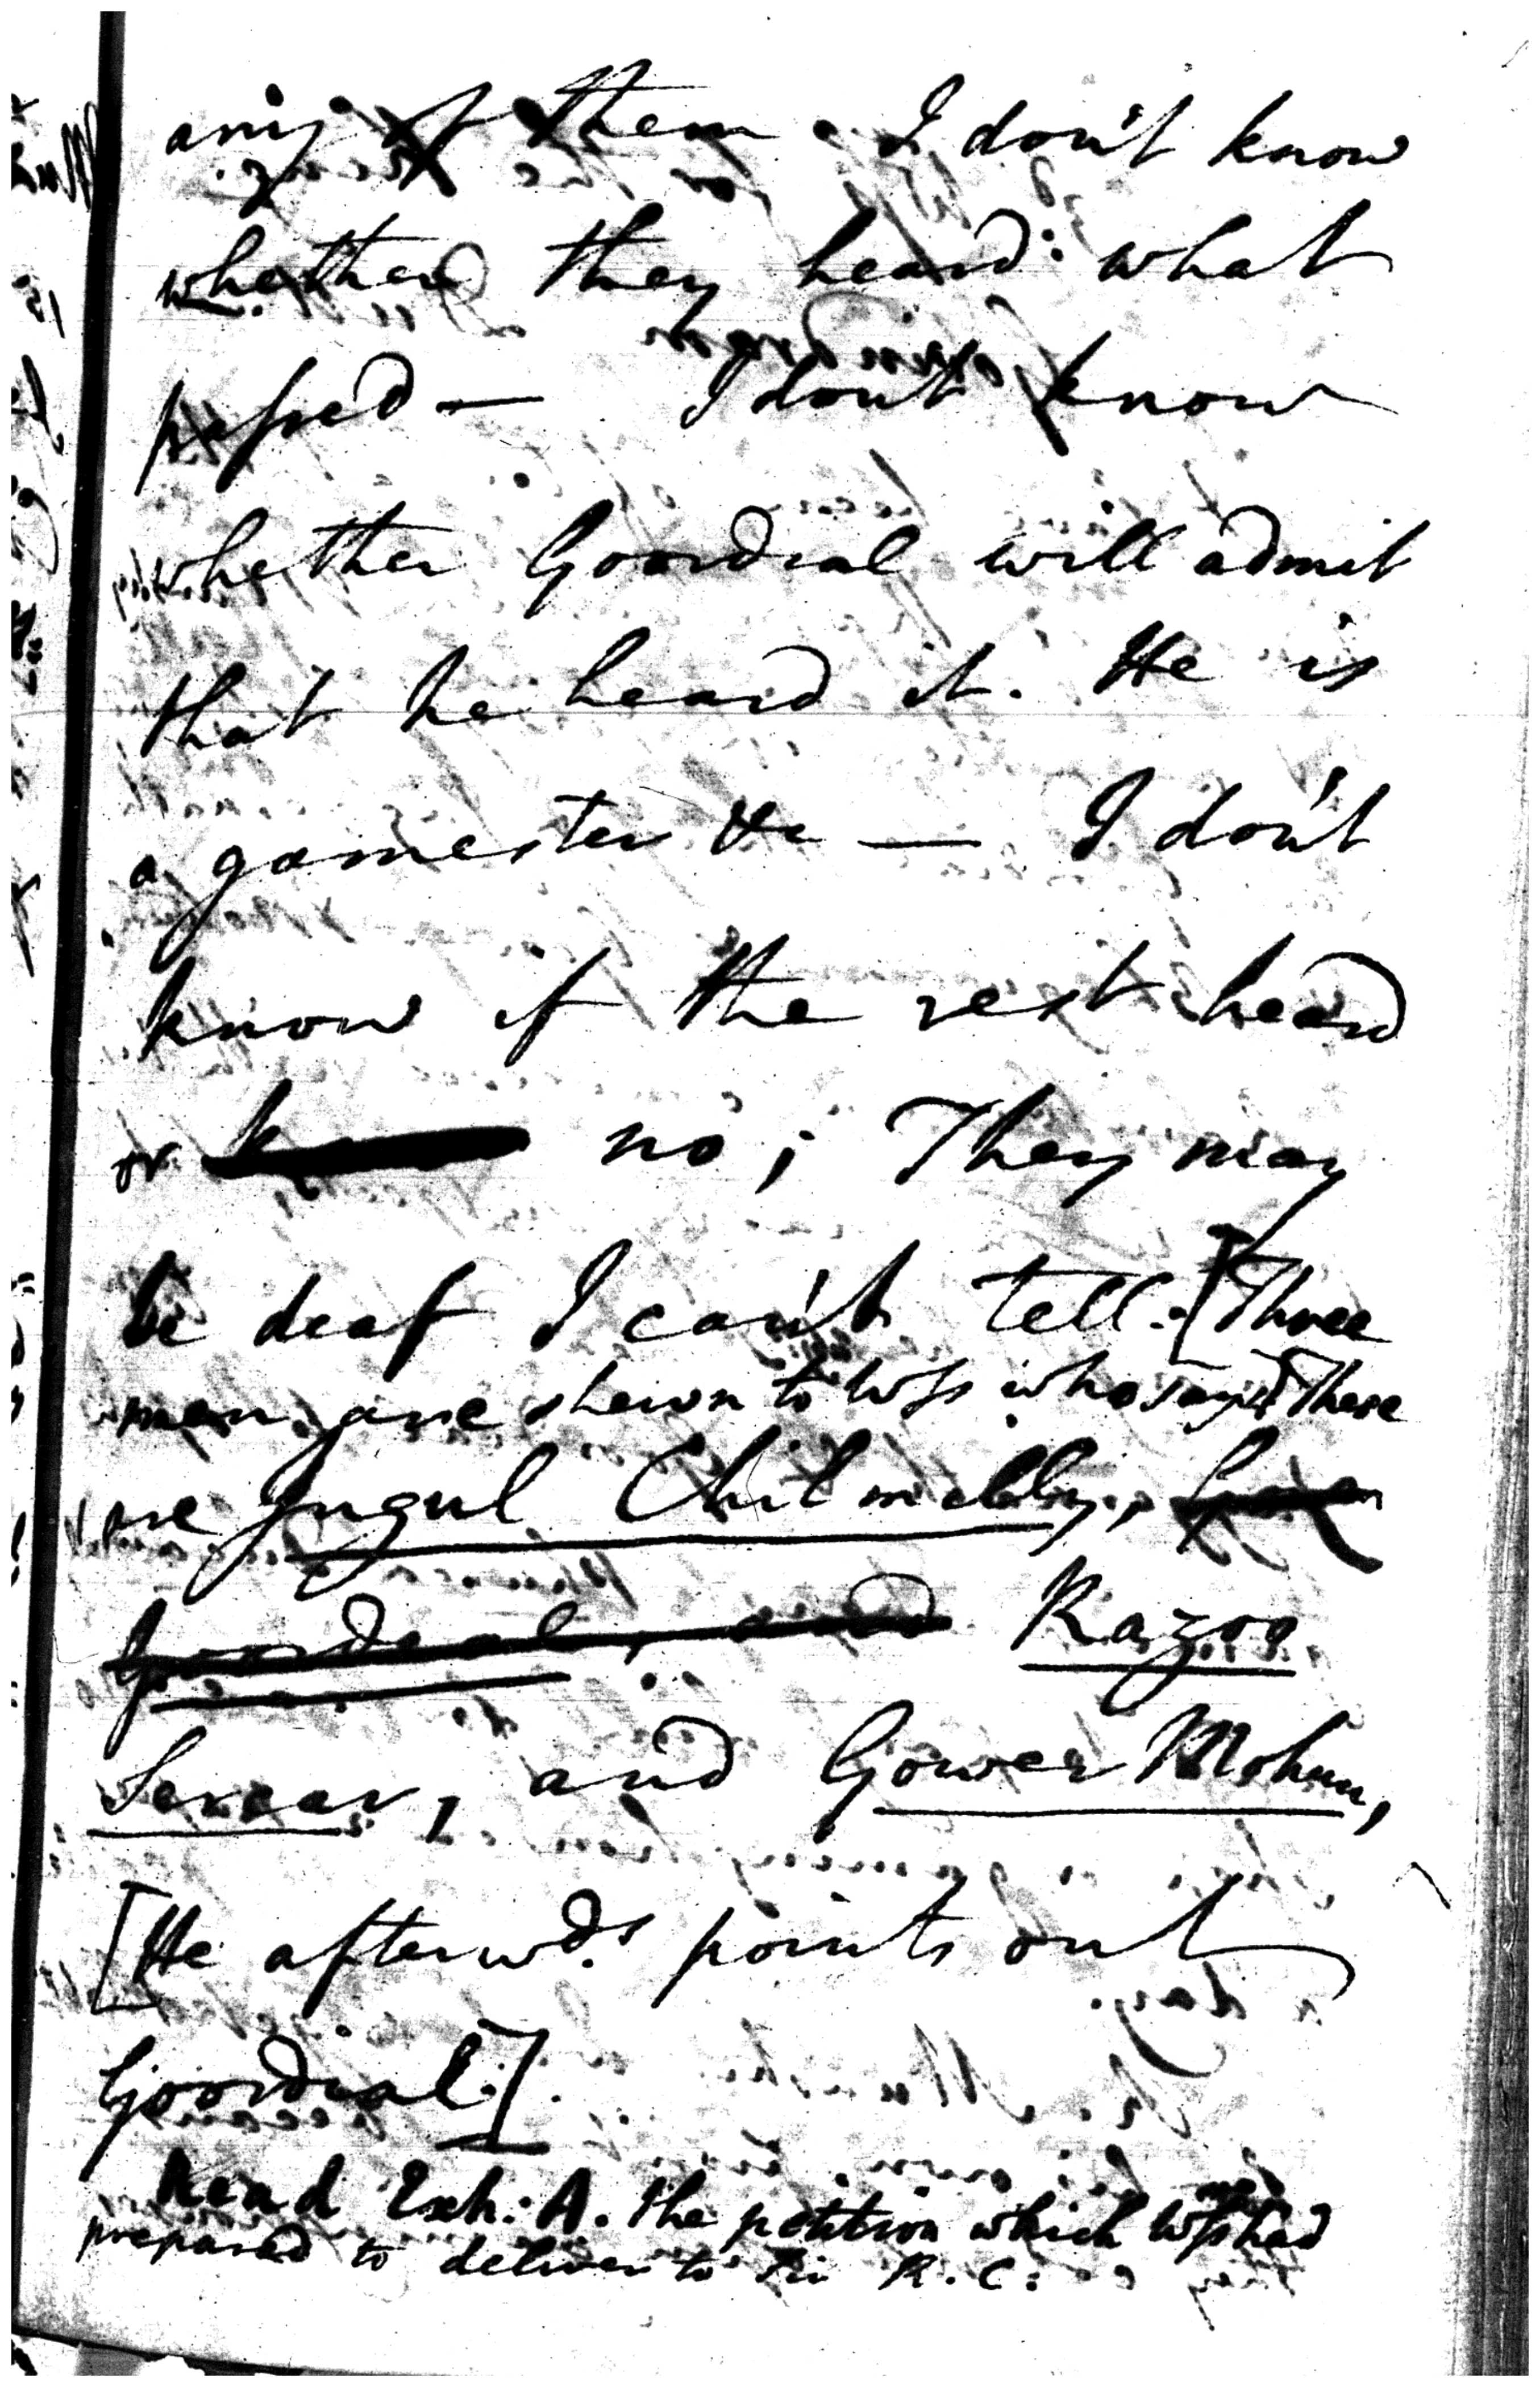 any of them. I don't know
whether they heard what
passed — I don't know
whether Goordial will admit
that he heard it. He is
a gamester &c — I don't
know if the rest heard
or no; They may
be deaf I can't tell. [Three
men are shewn to Wss who says] These
are Jugul Chilmelly,
Goordeal, and Razoo
Sercar, and Gower Mohun,
[He afterwds. points out
Goordial].
Read Exh: A. the petition which Wss had
prepared to deliver to Sir R. C: